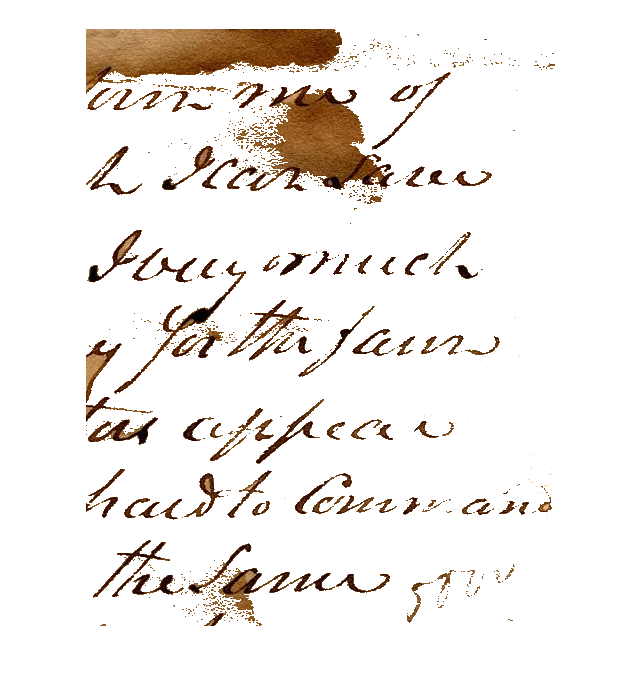 me of
h I can Save
I buy or much
y for the same
appear
hard to Command
the Same